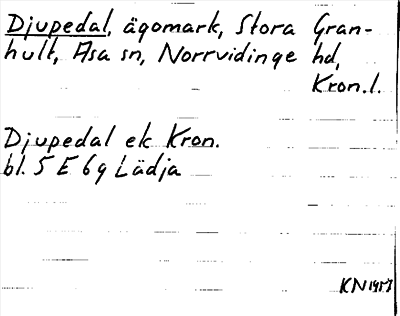 Djupedal, ägomark, Stora Gran-
hult, Asa sn, Norrvidinge hd,
Kron.l.
Djupedal ek Kron.
bl. 5 E 6g Lädja
KN